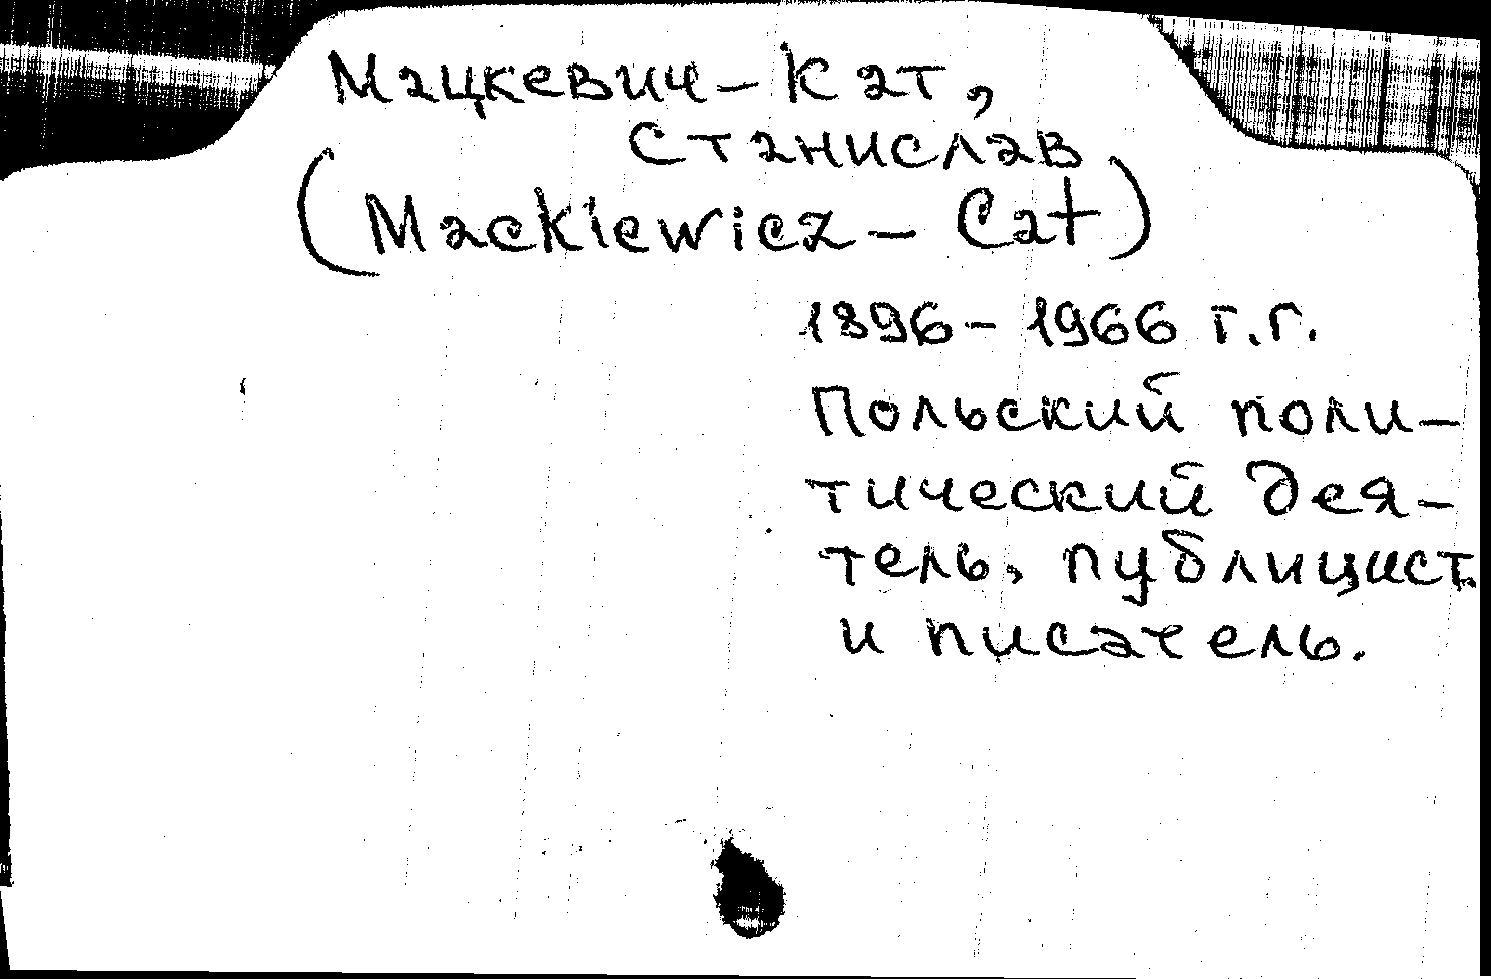 Мацкевич-Кат,
Станислав
(Mackiewicz-Cat)
1896-1966 г.г.
Польский поли-
тический дея-
тель, публицист
и писатель.